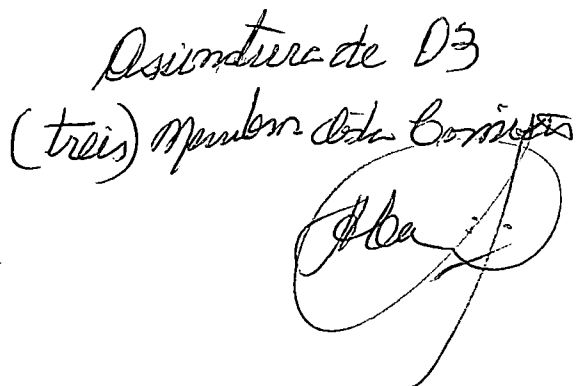 Assinatura de 03
(treis) Membros desta Comissão